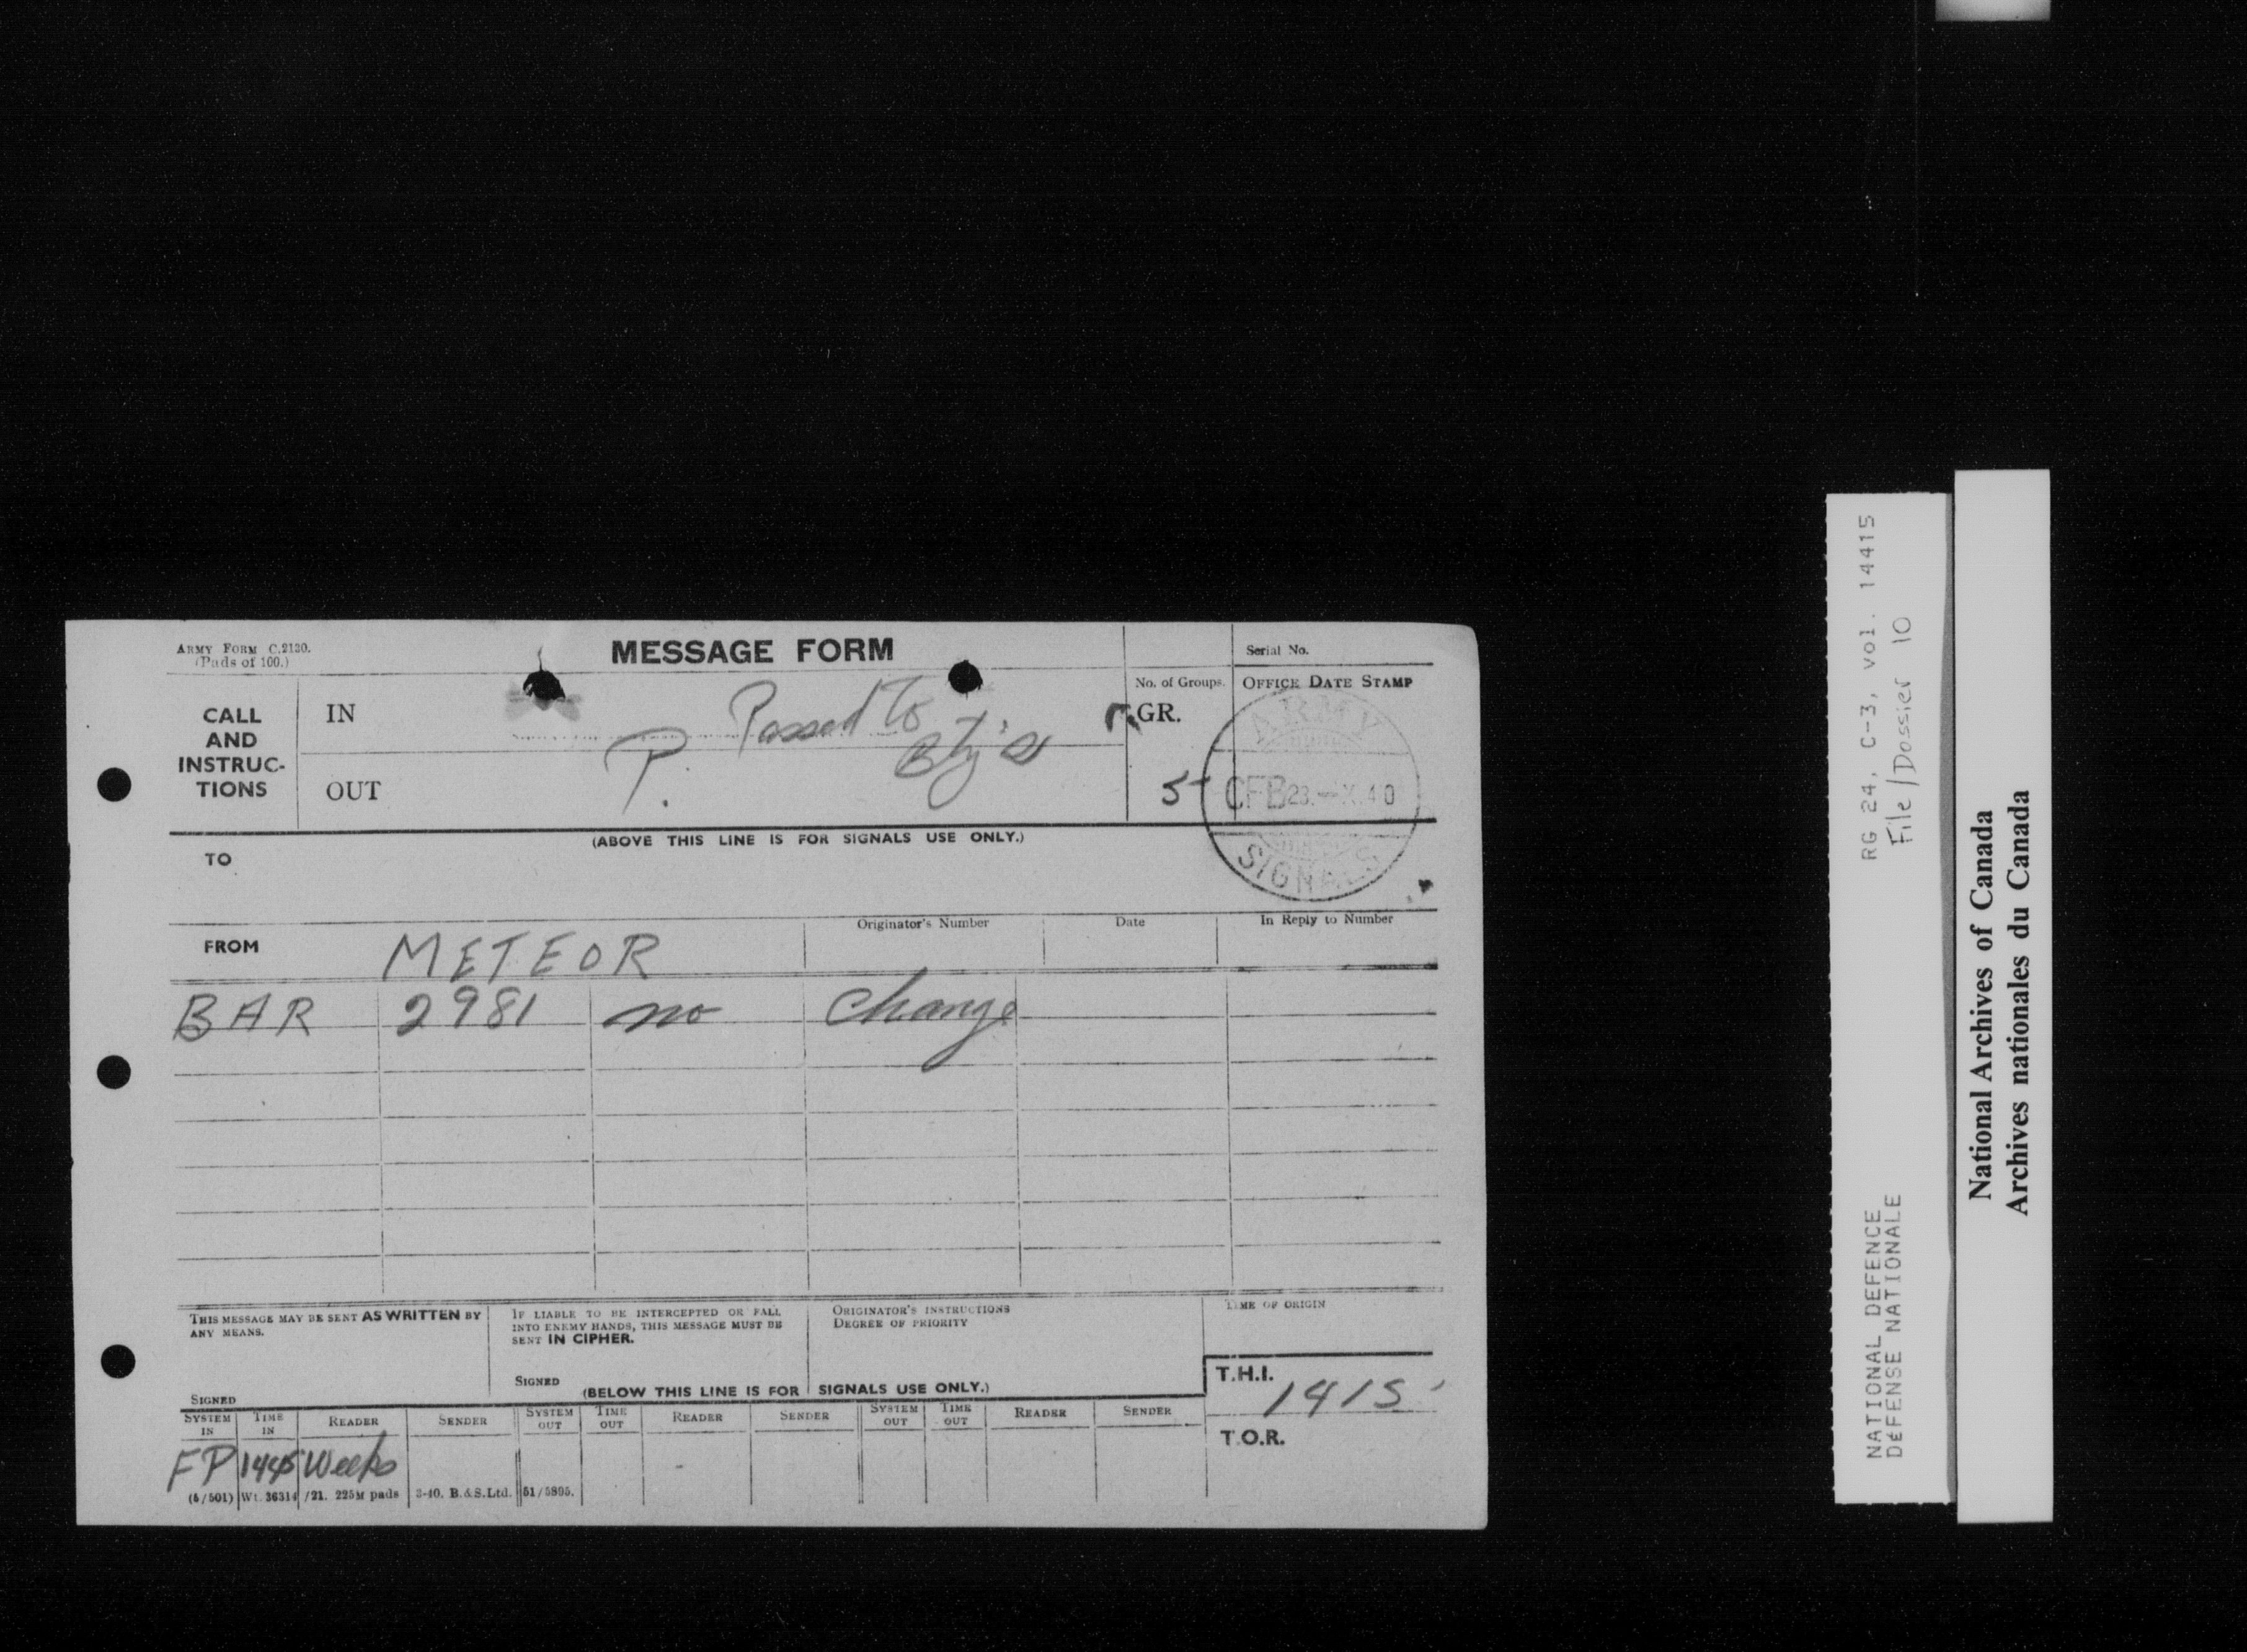 ARMY FORM C.2130.
(Pads of 100.)
MESSAGE FORM
Serial No.
CALL AND INSTRUC-TIONS
IN
OUT
P.
Passed to
Bty's
No. of Groups.
GR.
5
OFFICE DATE STAMP
ARMY
CFB 23. X. 40
SIGNALS
(ABOVE THIS LINE IS FOR SIGNALS USE ONLY.)
TO
FROM METEOR
Originator's Number
Date
In Reply to Number
BAR 2981 no change
THIS MESSAGE MAY BE SENT AS WRITTEN BY
ANY MEANS.
SIGNED
IF LIABLE TO BE INTERCEPTED OR FALL
INTO ENEMY HANDS, THIS MESSAGE MUST BE
SENT IN CIPHER.
SIGNED
ORIGINATOR'S INSTRUCTIONS
DEGREE OF PRIORITY
TIME OF ORIGIN
(BELOW THIS LINE IS FOR SIGNALS USE ONLY.)
T.H.I. 1415
T.O.R.
SYSTEM IN TIME IN READER SENDER SYSTEM OUT TIME OUT READER SENDER SYSTEM OUT TIME OUT READER SENDER
FP 1445 Weeks
(5/501) Wt. 36314/21. 225M pads 3-40. B.&S.Ltd. 51/5805.
RG 24, C-3, vol. 14415
File/Dossier 10
NATIONAL DEFENCE
DÉFENSE NATIONALE
National Archives of Canada
Archives nationales du Canada